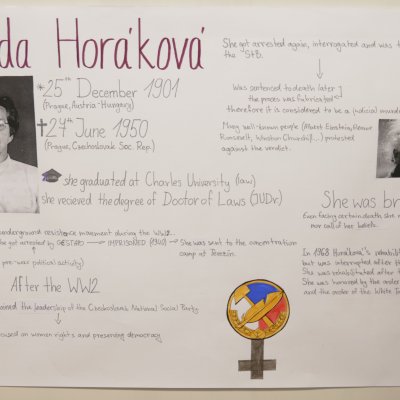 da Horáková
*25th December 1901
(Prague, Austria-Hungary)
✝27th June 1950
(Prague, Czechoslovak Soc. Rep.)
she graduated at Charles University (law)
She recieved the degree of Doctor of Laws (JUDr.)
underground resistence movement during the WW2.
She got arrested by GESTAPO → IMPRISONED (1940) → She was sent to the concentration
camp at Terezín.
pre-war political activity)
After the WW2
joined the leadership of the Czechoslovak National Social Party
focused on women rights and preserving democracy
She got arrested again, interrogated and was t
the StB.
Was sentenced to death later
the proces was fabricated
therefore it is considered to be a judicial murde
Many well-known people (Albert Einstein, Eleanor
Roosevelt, Winston Churchill...) protested
against the verdict.
She was br
Even facing certain death, she
nor any of her beliefs.
In 1968 Horáková's rehabilit
but was interrupted after th
She was rehabilitated after t
She was honored by the order
and the order of the White